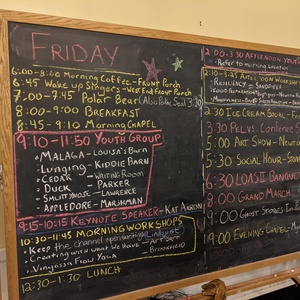 FRIDAY
6:00-8:00 Morning Coffee - Front Porch
6:45 Wake up Singers - West End Front Porch
7:00-7:45 Polar Bear
8:00-9:00 BREAKFAST
8:45-9:10 Morning CHAPEL
9:10-11:50 YOUTH GROUP
MALAGA - Louisa's Barn
Lunging - KIDDIE BARN
CEDAR - WRITING ROOM
DUCK - PARKER
SMUTTYNOSE - LAWRENCE
APPLEDORE - MARSHMAN
9:15-10:15 KEYNOTE SPEAKER - KAT
10:30-11:45 MORNING WORKSHOPS
Keep the channel open
Creating with what we have - ART BARN
Vinyassa Flow Yoga
12:30-1:30 LUNCH
2:00-3:30 AFTERNOON YOUTH
Refer to morning location
2:10-3:25 AFTERNOON WORKSHOPS
RESILIENCY - SANDPIPER
2:30 ICE CREAM SOCIAL
3:30 PEL vs. Conference
5:00 ART SHOW
5:30 SOCIAL HOUR
6:30 LOAS II BANQUET
8:00 GRAND MARCH
9:00 GHOST STORIES
9:00 EVENING CHAPEL